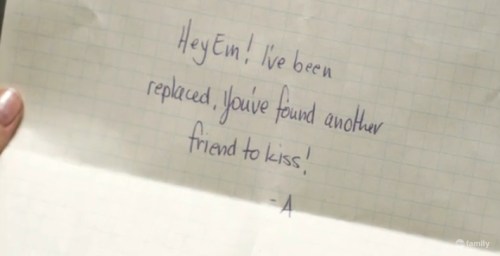 Hey Em! I've been
replaced. You've found another
friend to kiss!
- A
family